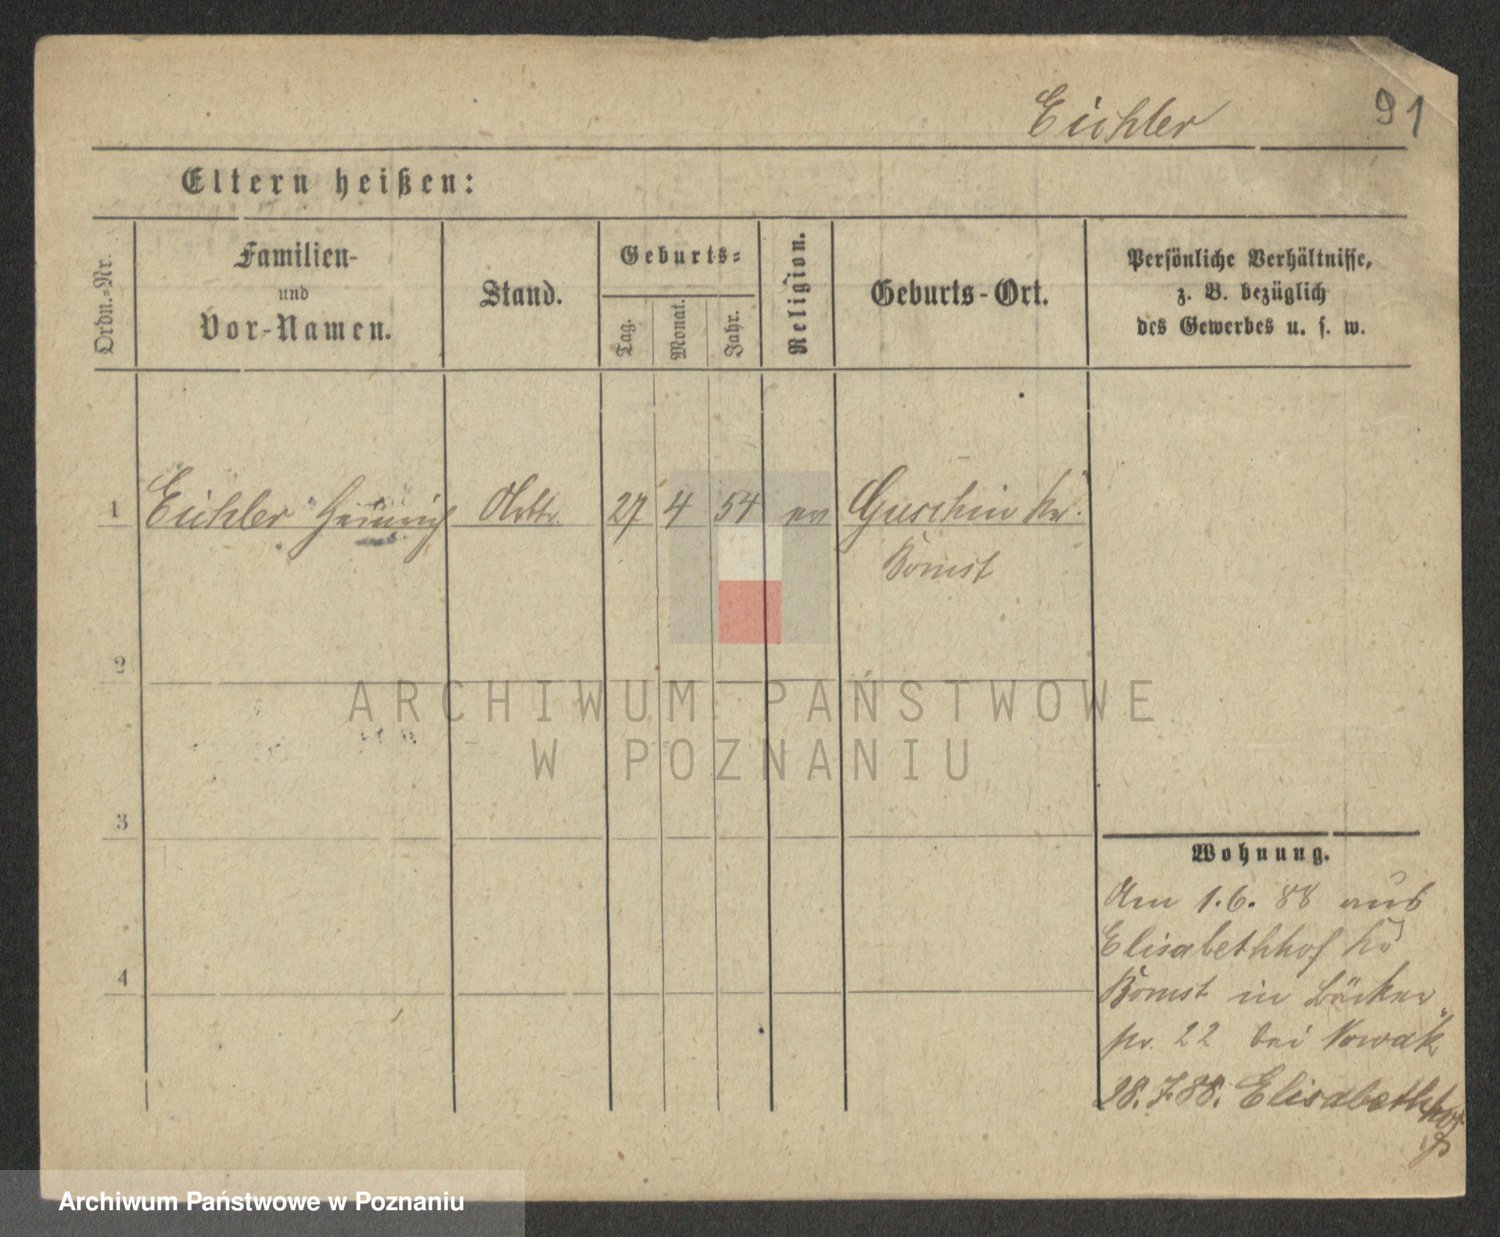 Eichler
91
Eltern heißen:
Ordn.-Nr.
Familien-
und
Vor-Namen.
Stand.
Geburts-
Tag.
Monat.
Jahr.
Religion.
Geburts-Ort.
Persönliche Verhältnisse,
z. B. bezüglich
des Gewerbes u. s. w.
1 Eichler Heinrich 27 4 54 ev Guschin Kr.
Bomst
2
ARCHIWUM PAŃSTWOWE
W POZNANIU
3
Wohnung.
Am 1.6.88 aus
Elisabethhof Kr
Bomst in Bäcker
22 bei Nowak
28.7.88. Elisabethhof
4
Archiwum Państwowe w Poznaniu